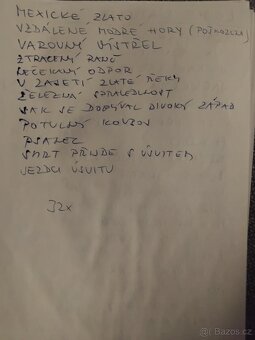 MEXICKÉ ZLATO
VZDÁLENÉ MODRÉ HORY (POŠKOZENÍ)
VAROVNÝ VÝSTŘEL
ZTRACENÝ RANČ
NEČEKANÝ ODPOR
V ZAJETÍ ZLATÉ ŘEKY
ŽELEZNÁ SPRAVEDLNOST
JAK SE DOBÝVAL DIVOKÝ ZÁPAD
POTULNÝ KOVBOJ
PSANEC
SMRT PŘIJDE S ÚSVITEM
JEZDCI ÚSVITU
32x
Bazos.cz